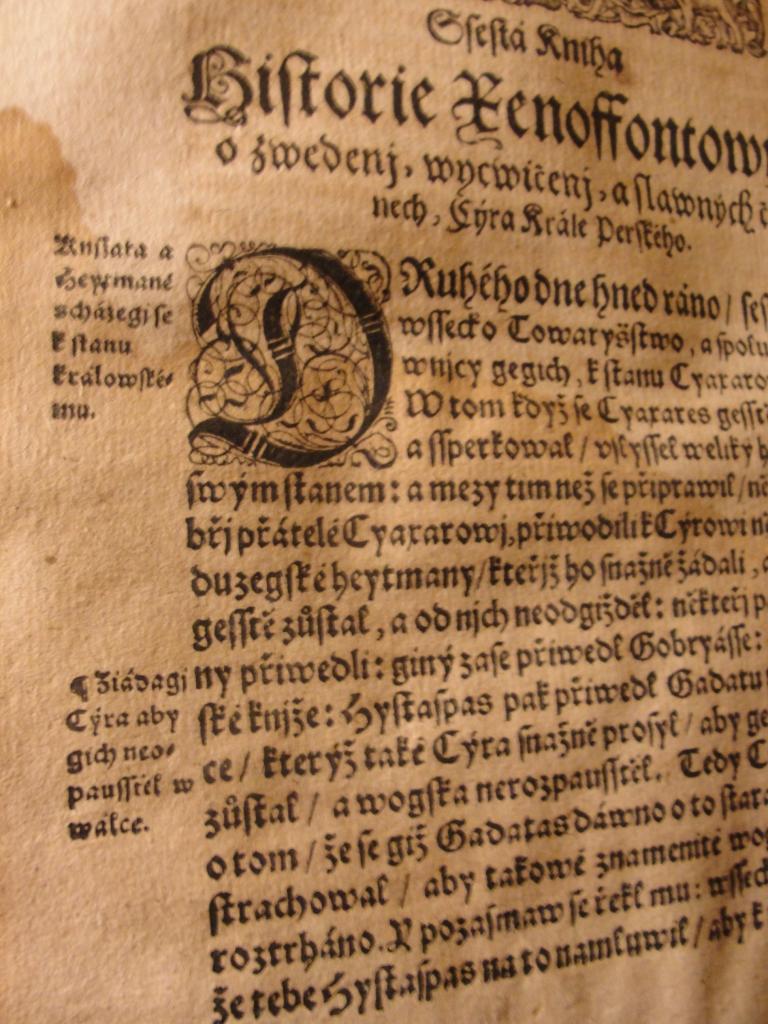 Ssestá Kniha
Historie Xenoffontowy
o zwedenj, wycwičenj, a slawných
nech, Cýra Krále Perského.
Knjžata a
Heytmané
scházegj se
k stanu
králowské-
mu.
DRuhého dne hned ráno /
wssecko Towaryšstwo, a spolu
wnjcy gegich, k stanu
W tom když se Cyaxares gesstě
a ssperkowal / vslyssel weliký
swým stanem: a mezy tim než se připrawil /
břj přátelé Cyaxarowj, přiwodili k Cýrowi
duzegské heytmany / kteřjž ho snažně žádali,
gesstě zůstal, a od njch neodgjžděl: někteřj
ny přiwedli: giný zase přiwedl Gobryásse:
ské knjže: Hystaspas pak přiwedl
ce / kterýž také Cýra snažně prosyl / aby
zůstal / a wogska nerozpausstěl. Tedy
o tom / že se giž Gadatas dáwno o to
strachowal / aby takowé znamenité
roztrháno. Y pozasmaw se řekl mu:
že tebe Hystaspas na to namluwil / aby
¶ Žádagj
Cýra aby
gich neo-
paussttěl w
walce.